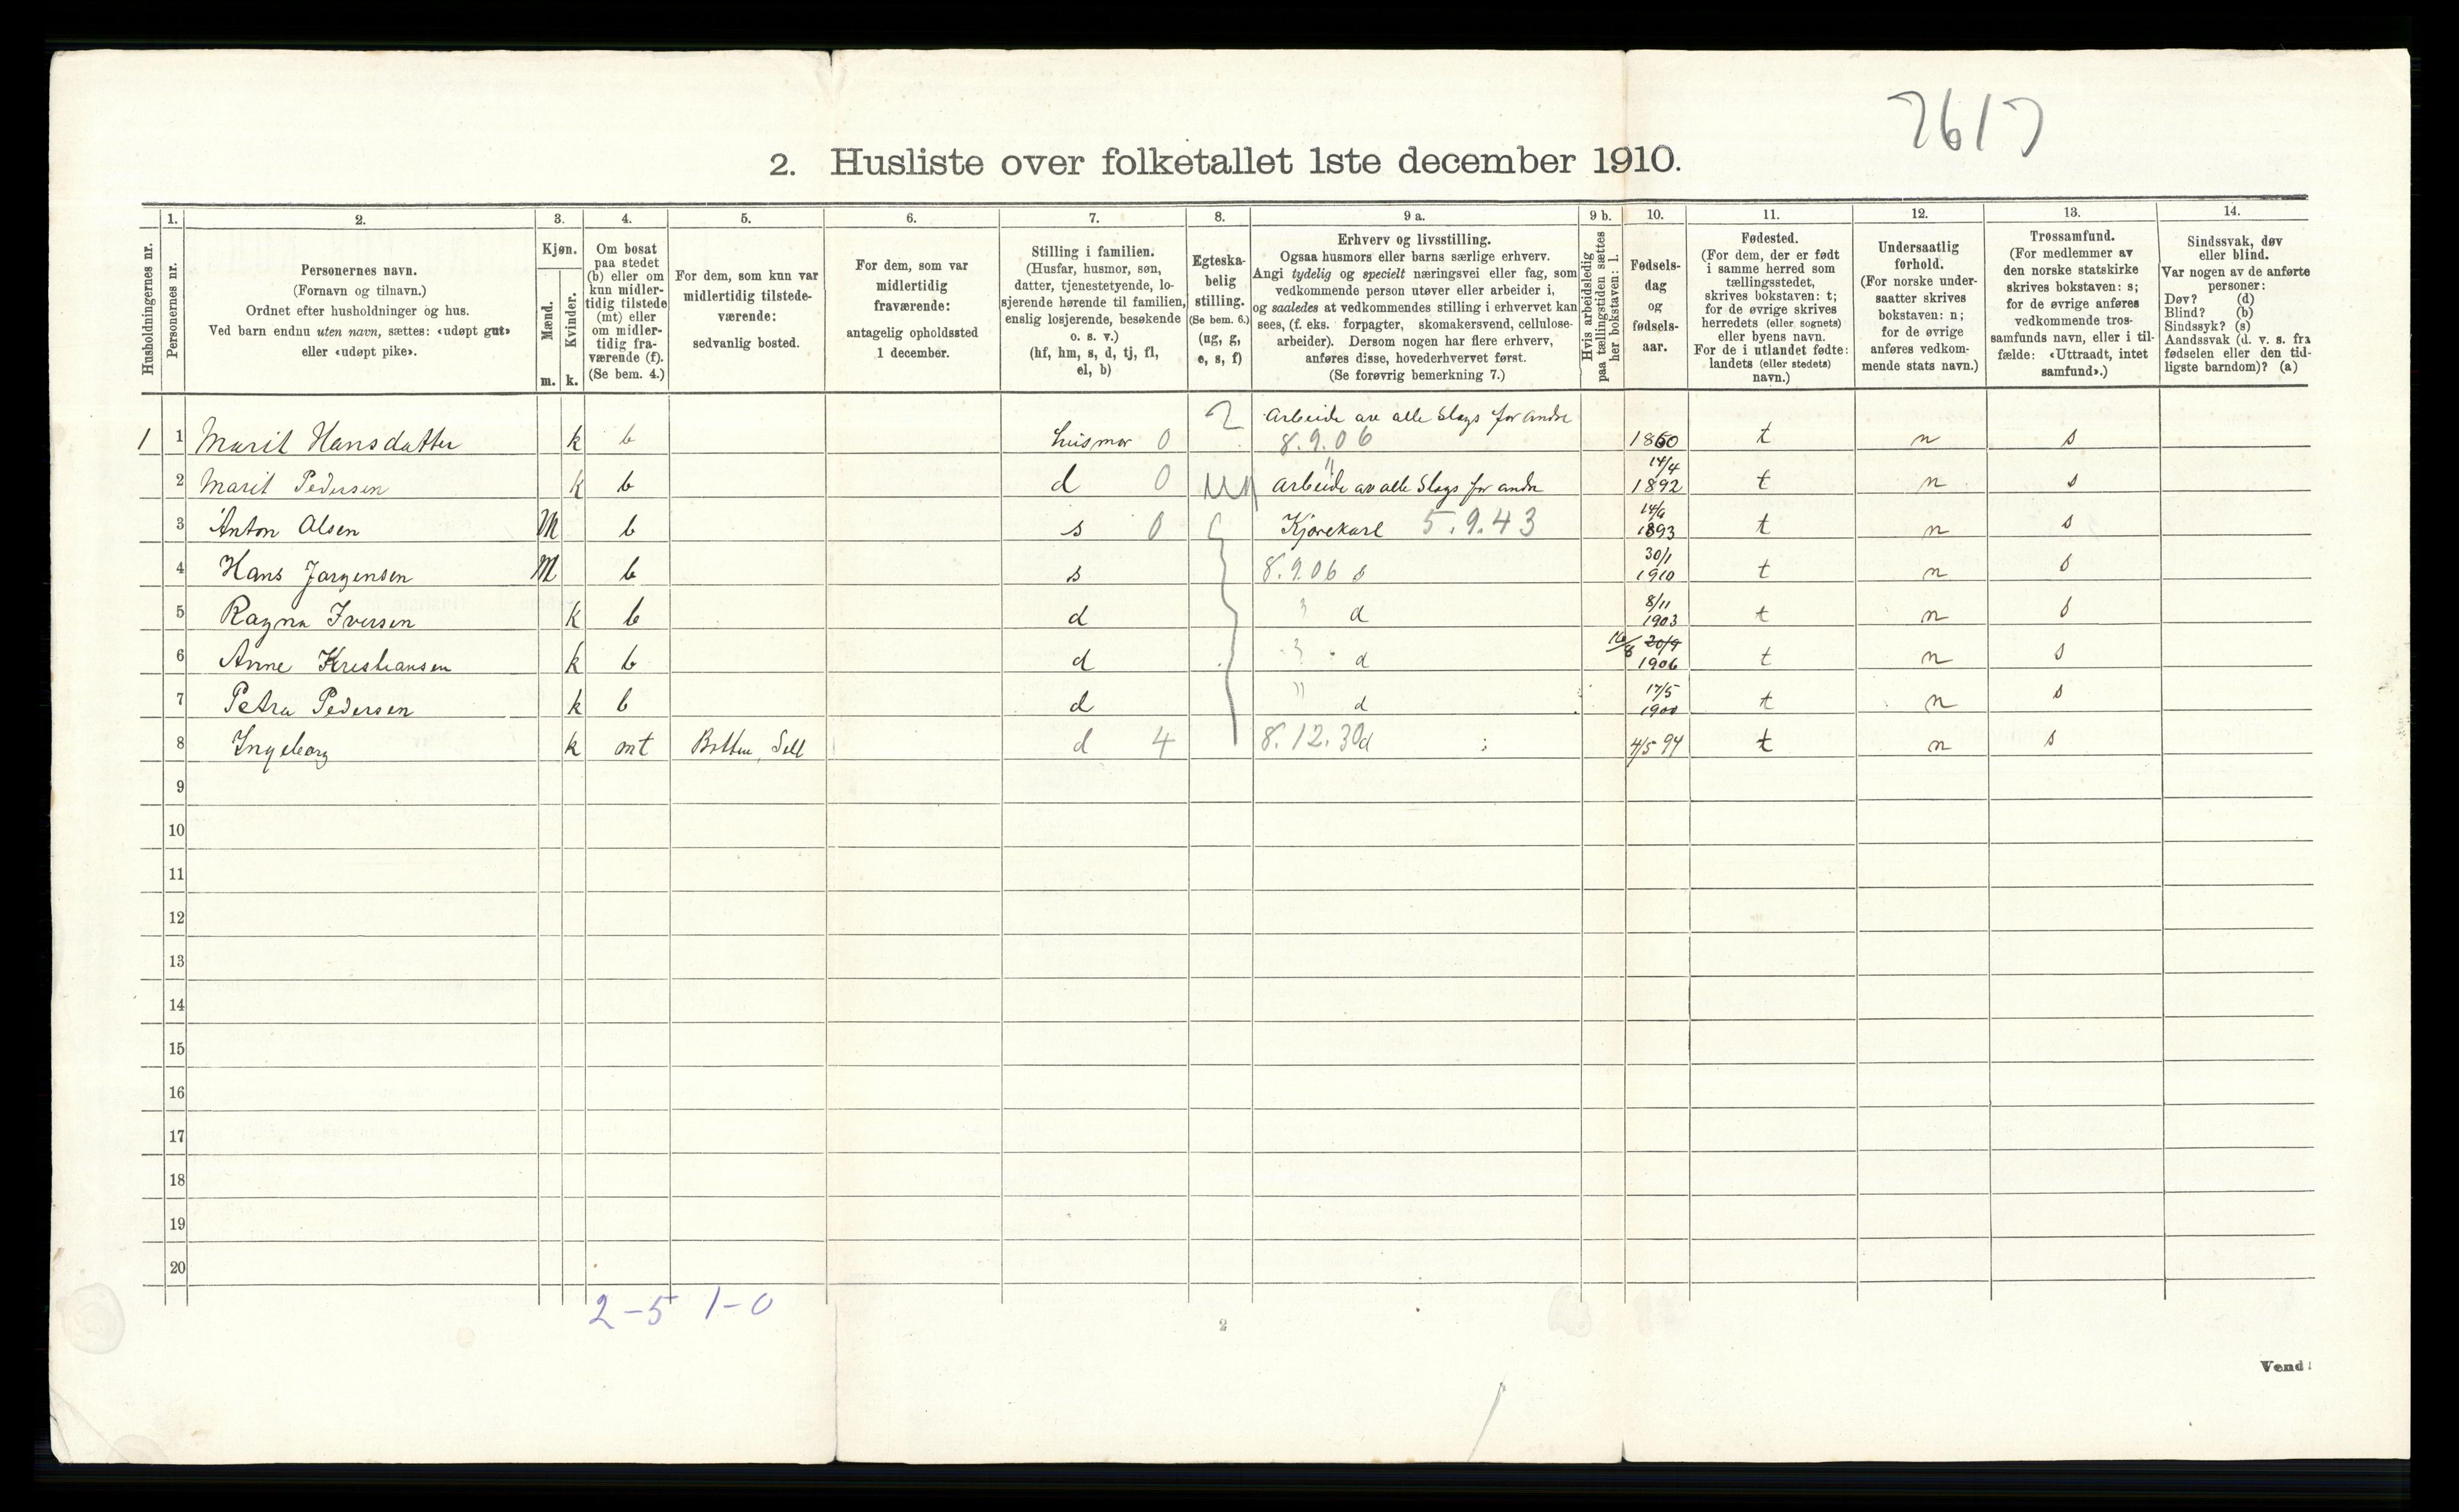 7617
2. Husliste over folketallet 1ste december 1910.
Husholdningernes nr.
1. Personernes nr.
2. Personernes navn.
(Fornavn og tilnavn.)
Ordnet efter husholdninger og hus.
Ved barn endnu uten navn, sættes: «udøpt gut»
eller «udøpt pike».
3. Kjøn.
Mænd. m.
Kvinder. k.
4. Om bosat
paa stedet
(b) eller om
kun midler-
tidig tilstede
(mt) eller
om midler-
tidig fra-
værende (f).
(Se bem. 4.)
5. For dem, som kun var
midlertidig tilstede-
værende:
sedvanlig bosted.
6. For dem, som var
midlertidig
fraværende:
antagelig opholdssted
1 december.
7. Stilling i familien.
(Husfar, husmor, søn,
datter, tjenestetyende, lo-
sjerende hørende til familien,
enslig losjerende, besøkende
o. s. v.)
(hf, hm, s, d, tj, fl,
el, b)
8. Egteska-
belig
stilling.
(Se bem. 6.)
(ug, g,
e, s, f)
9 a. Erhverv og livsstilling.
Ogsaa husmors eller barns særlige erhverv.
Angi tydelig og specielt næringsvei eller fag, som
vedkommende person utøver eller arbeider i,
og saaledes at vedkommendes stilling i erhvervet kan
sees, (f. eks. forpagter, skomakersvend, cellulose-
arbeider). Dersom nogen har flere erhverv,
anføres disse, hovederhvervet først.
(Se forøvrig bemerkning 7.)
9 b. Hvis arbeidsledig
paa tællingstiden sættes
her bokstaven: l.
10. Fødsels-
dag
og
fødsels-
aar.
11. Fødested.
(For dem, der er født
i samme herred som
tællingsstedet,
skrives bokstaven: t;
for de øvrige skrives
herredets (eller sognets)
eller byens navn.
For de i utlandet fødte:
landets (eller stedets)
navn.)
12. Undersaatlig
forhold.
(For norske under-
saatter skrives
bokstaven: n;
for de øvrige
anføres vedkom-
mende stats navn.)
13. Trossamfund.
(For medlemmer av
den norske statskirke
skrives bokstaven: s;
for de øvrige anføres
vedkommende tros-
samfunds navn, eller i til-
fælde: «Uttraadt, intet
samfund».)
14. Sindssvak, døv
eller blind.
Var nogen av de anførte
personer:
Døv? (d)
Blind? (b)
Sindssyk? (s)
Aandssvak (d. v. s. fra
fødselen eller den tid-
ligste barndom)? (a)
1 1 Marit Hansdatter k b husmor 0 Arbeide av alle Slags for andre 8.9.06 1860 t n s
2 Marit Pedersen k b d 0 " Arbeide av alle Slags for andre 14/4 1892 t n s
3 Anton Olsen M b s 0 Kjørekarl 5.9.43 1893 t n s
4 Hans Jørgensen M b s 8.9.06 s 30/1 1910 t n s
5 Ragna Iversen k b d d 8/11 1903 t n s
6 Anne Kristiansen k b d d 16/8 20/9 1906 t n s
7 Petra Pedersen k b d " d 17/5 1900 t n s
8 Ingeborg k mt Sell d 4 8.12.30 d 4/5 94 t n s
9
10
11
12
13
14
15
16
17
18
19
20
2-5 1-0
2
Vend!